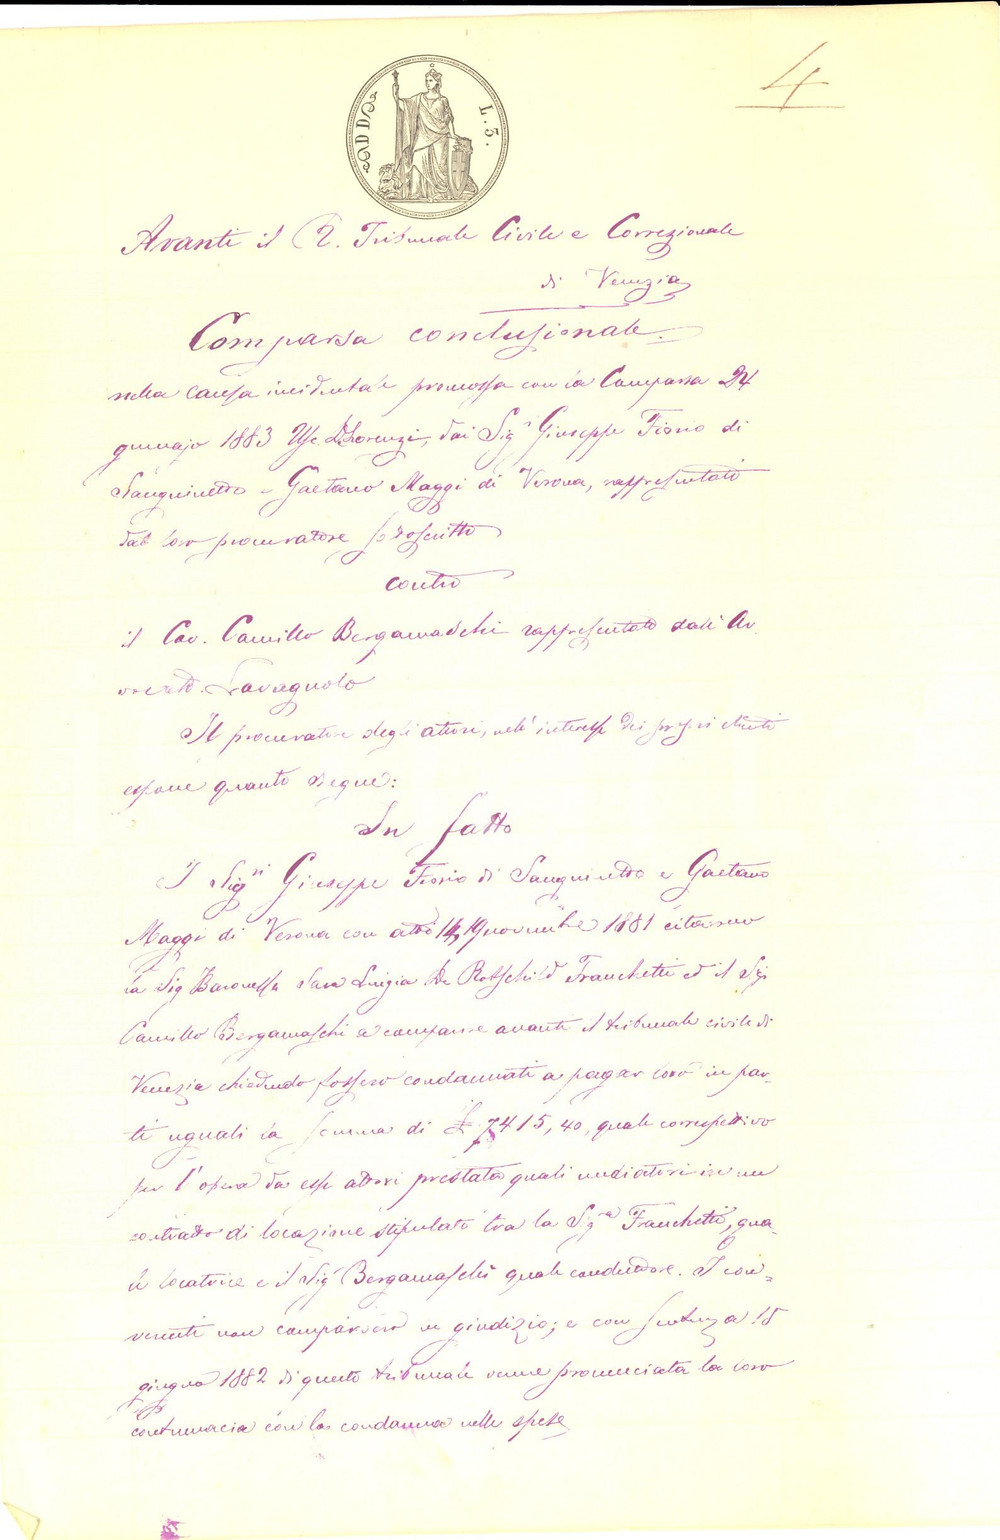 4
ADDI
L. 3.
Avanti il R. Tribunale Civile e Correzionale
di Venezia
Comparsa conclusionale
nella causa incidentale promossa con la Comparsa 24
gennajo 1883 Usc. DeLorenzi, dai Sig.i Giuseppe Fiorio di
Sanguinetto e Gaetano Maggi di Verona, rappresentati
dal loro procuratore sottoscritto
contro
il Cav. Camillo Bergamaschi rappresentato dall'Av
vocato
Il procuratore degli attori, nell'interesse dei propri clienti
espone quanto segue:
In fatto
I Sig.ri Giuseppe Fiorio di Sanguinetto e Gaetano
Maggi di Verona con atto 14, 19 novembre 1881 citarono
la Sig Baronessa Sara Luigia De Rotschild Franchetti ed il Sig
Camillo Bergamaschi a comparire avanti il tribunale civile di
Venezia chiedendo fossero condannati a pagar loro in par-
ti uguali la somma di £ 7415,40, quale correspettivo
per l'opera da essi attori prestata quali mediatori in un
contratto di locazione stipulato tra la Sig.a Franchetti, qua-
le locatrice e il Sig. Bergamaschi quale conduttore. I con-
venuti non comparvero in giudizio; e con sentenza 15
giugno 1882 di questo tribunale venne pronunciata la loro
contumacia con la condanna nelle spese